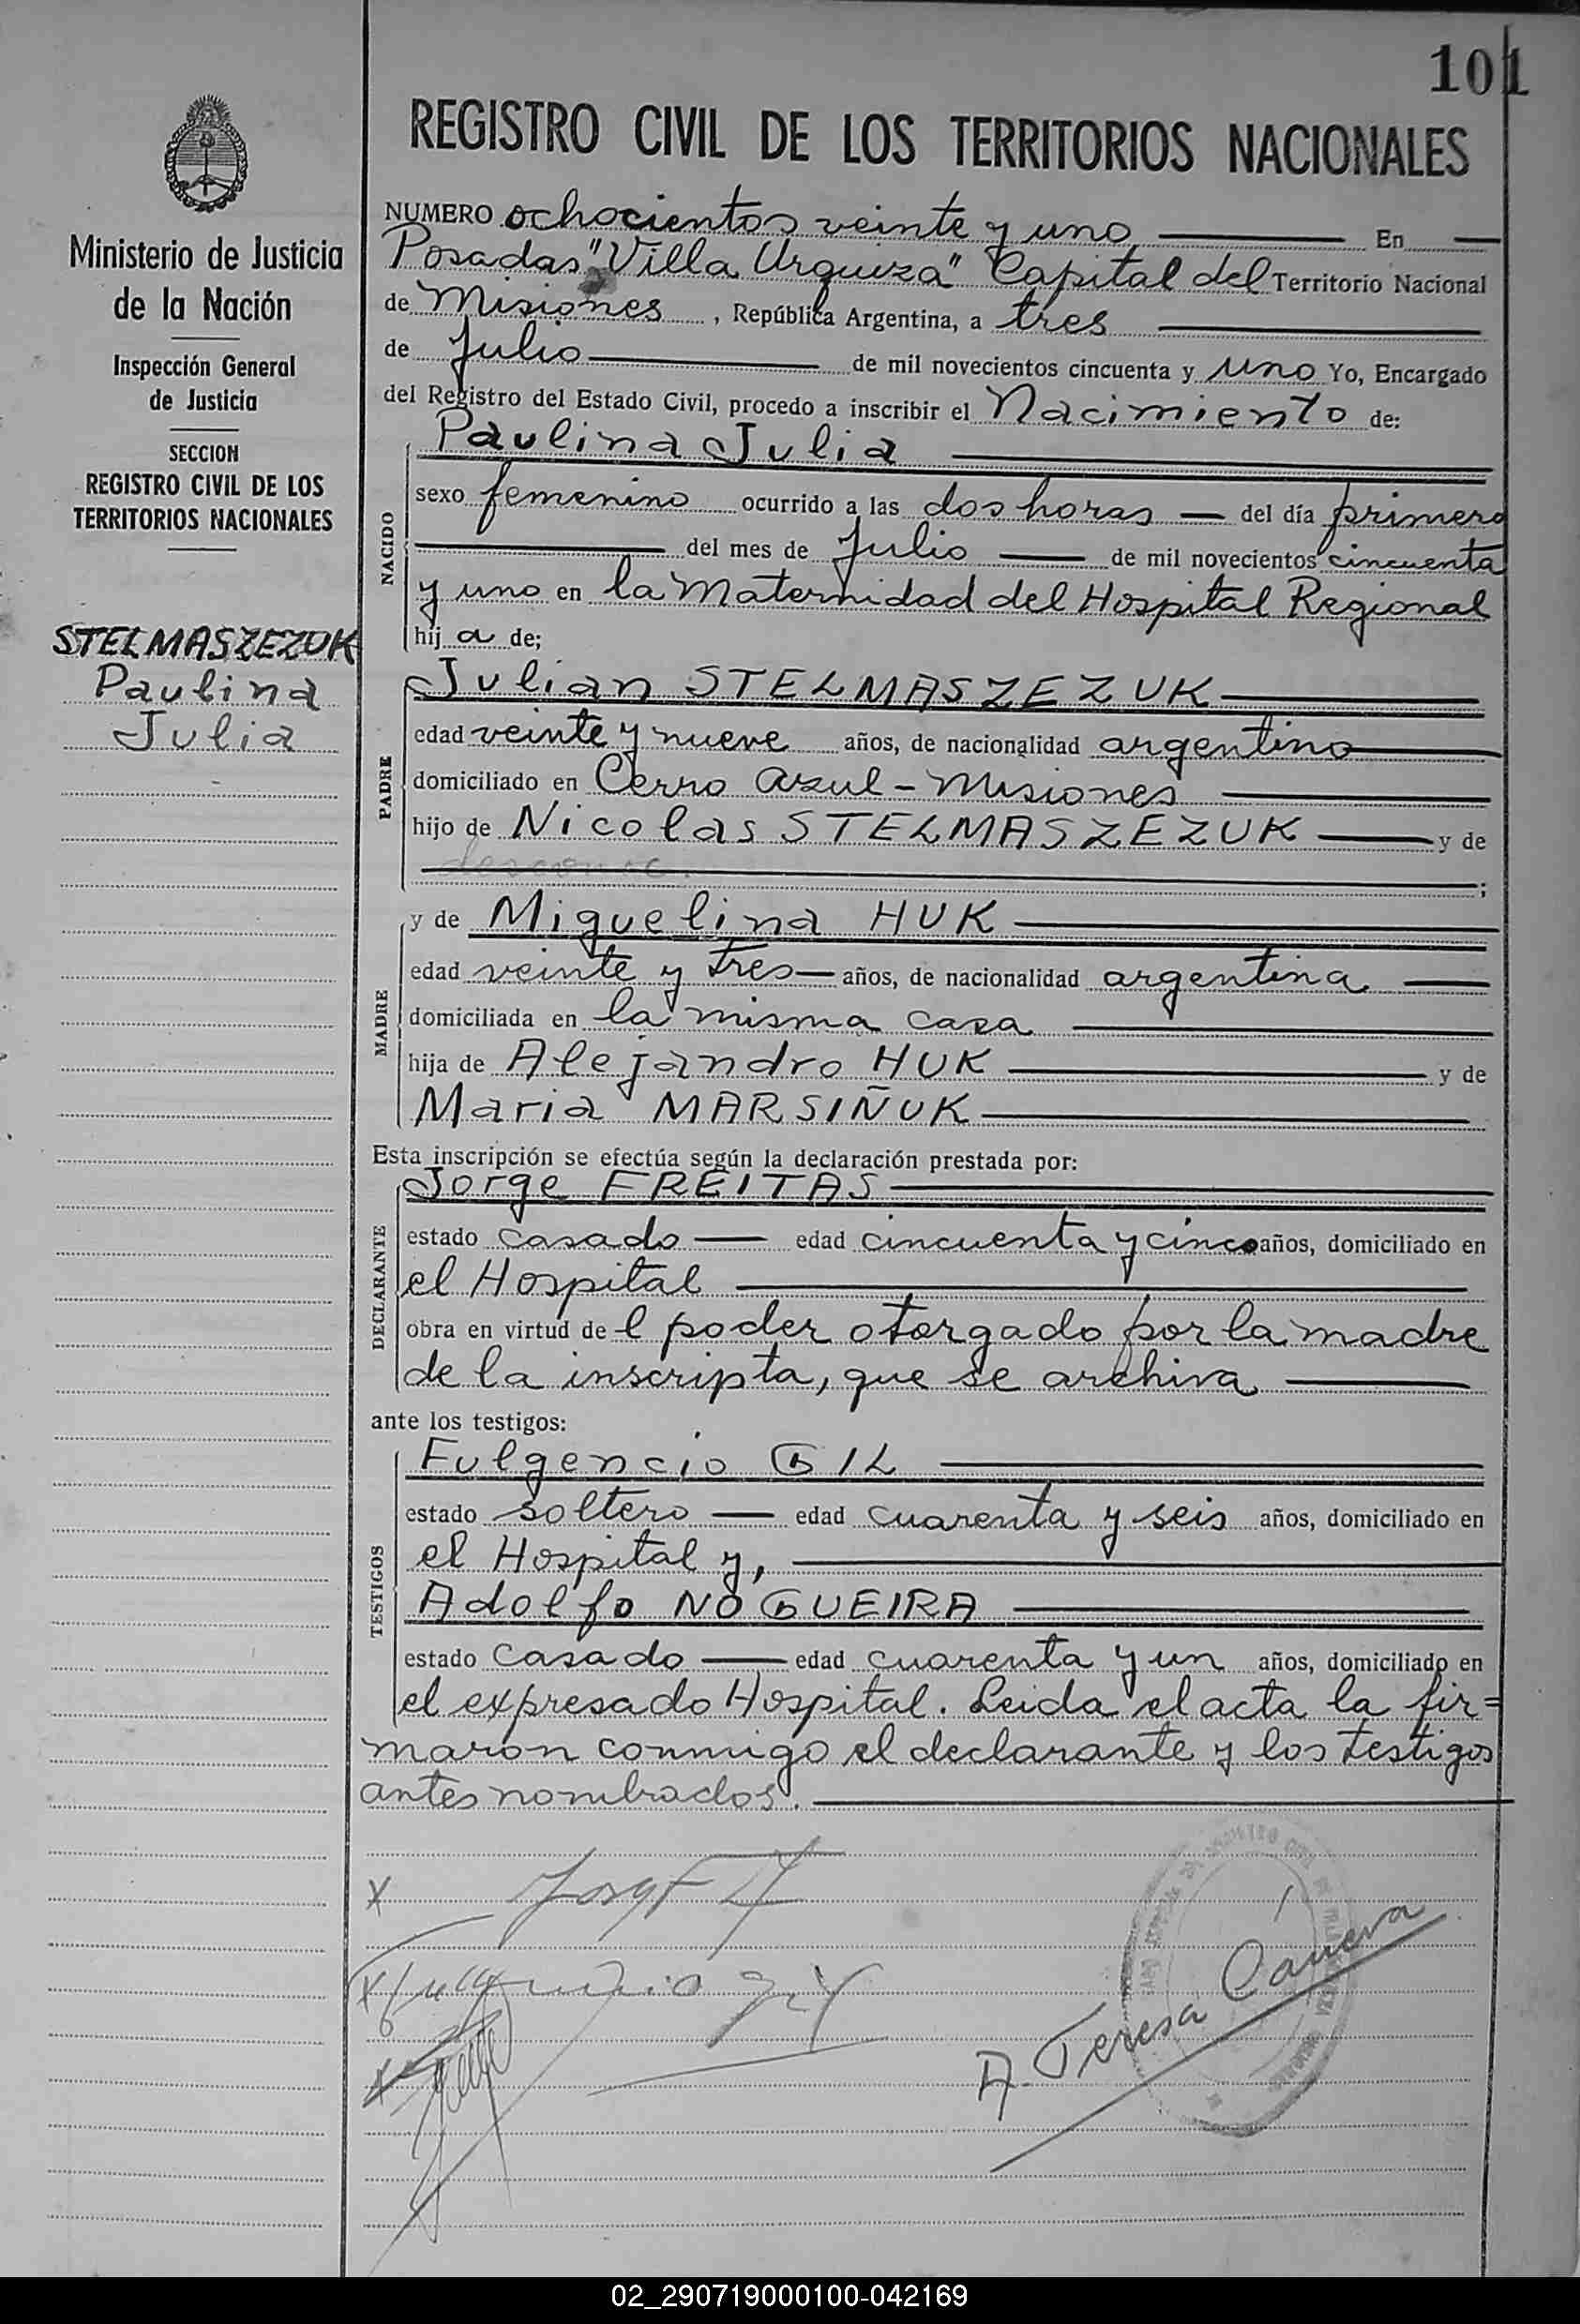 101
REGISTRO CIVIL DE LOS TERRITORIOS NACIONALES
Ministerio de Justicia
de la Nación
Inspección General
de Justicia
SECCION
REGISTRO CIVIL DE LOS
TERRITORIOS NACIONALES
STELMASZEZUK
Paulina
Julia
NUMERO ochocientos veinte y uno En
Posadas "Villa Urquiza" Capital del Territorio Nacional
de Misiones, República Argentina, a tres
de Julio de mil novecientos cincuenta y uno Yo, Encargado
del Registro del Estado Civil, procedo a inscribir el Nacimiento de:
NACIDO
Paulina Julia
sexo femenino ocurrido a las dos horas del día primero
del mes de Julio de mil novecientos cincuenta
y uno en la Maternidad del Hospital Regional
hij a de;
PADRE
Julian STELMASZEZUK
edad veinte y nueve años, de nacionalidad argentino
domiciliado en Cerro Azul - Misiones
hijo de Nicolas STELMASZEZUK y de
;
MADRE
y de Miguelina HUK
edad veinte y tres años, de nacionalidad argentina
domiciliada en la misma casa
hija de Alejandro HUK y de
Maria MARSIÑUK
Esta inscripción se efectúa según la declaración prestada por:
DECLARANTE
Jorge FREITAS
estado casado edad cincuenta y cinco años, domiciliado en
el Hospital
obra en virtud de l poder otorgado por la madre
de la inscripta, que se archiva
ante los testigos:
TESTIGOS
Fulgencio GIL
estado soltero edad cuarenta y seis años, domiciliado en
el Hospital y,
Adolfo NOGUEIRA
estado casado edad cuarenta y un años, domiciliado en
el expresado Hospital. Leida el acta la fir=
maron conmigo el declarante y los testigos
antes nombrados.
A. Teresa Cáneva
02_290719000100-042169